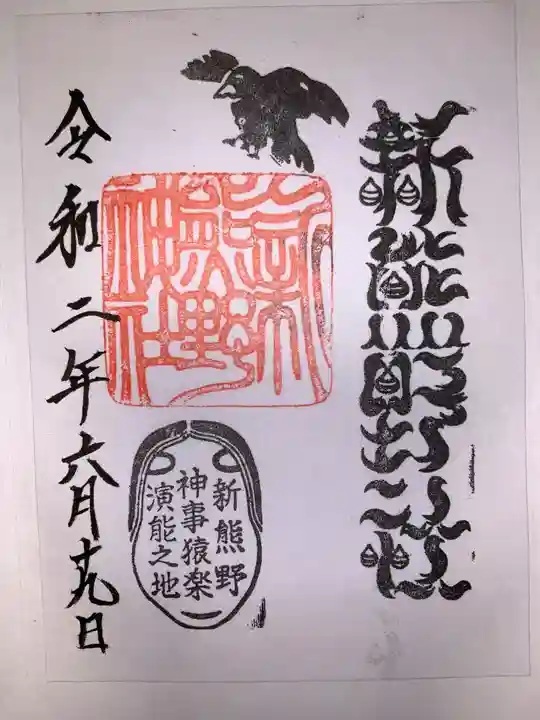 新熊野社
新熊野神社
新熊野
神事猿楽
演能之地
令和二年六月十九日